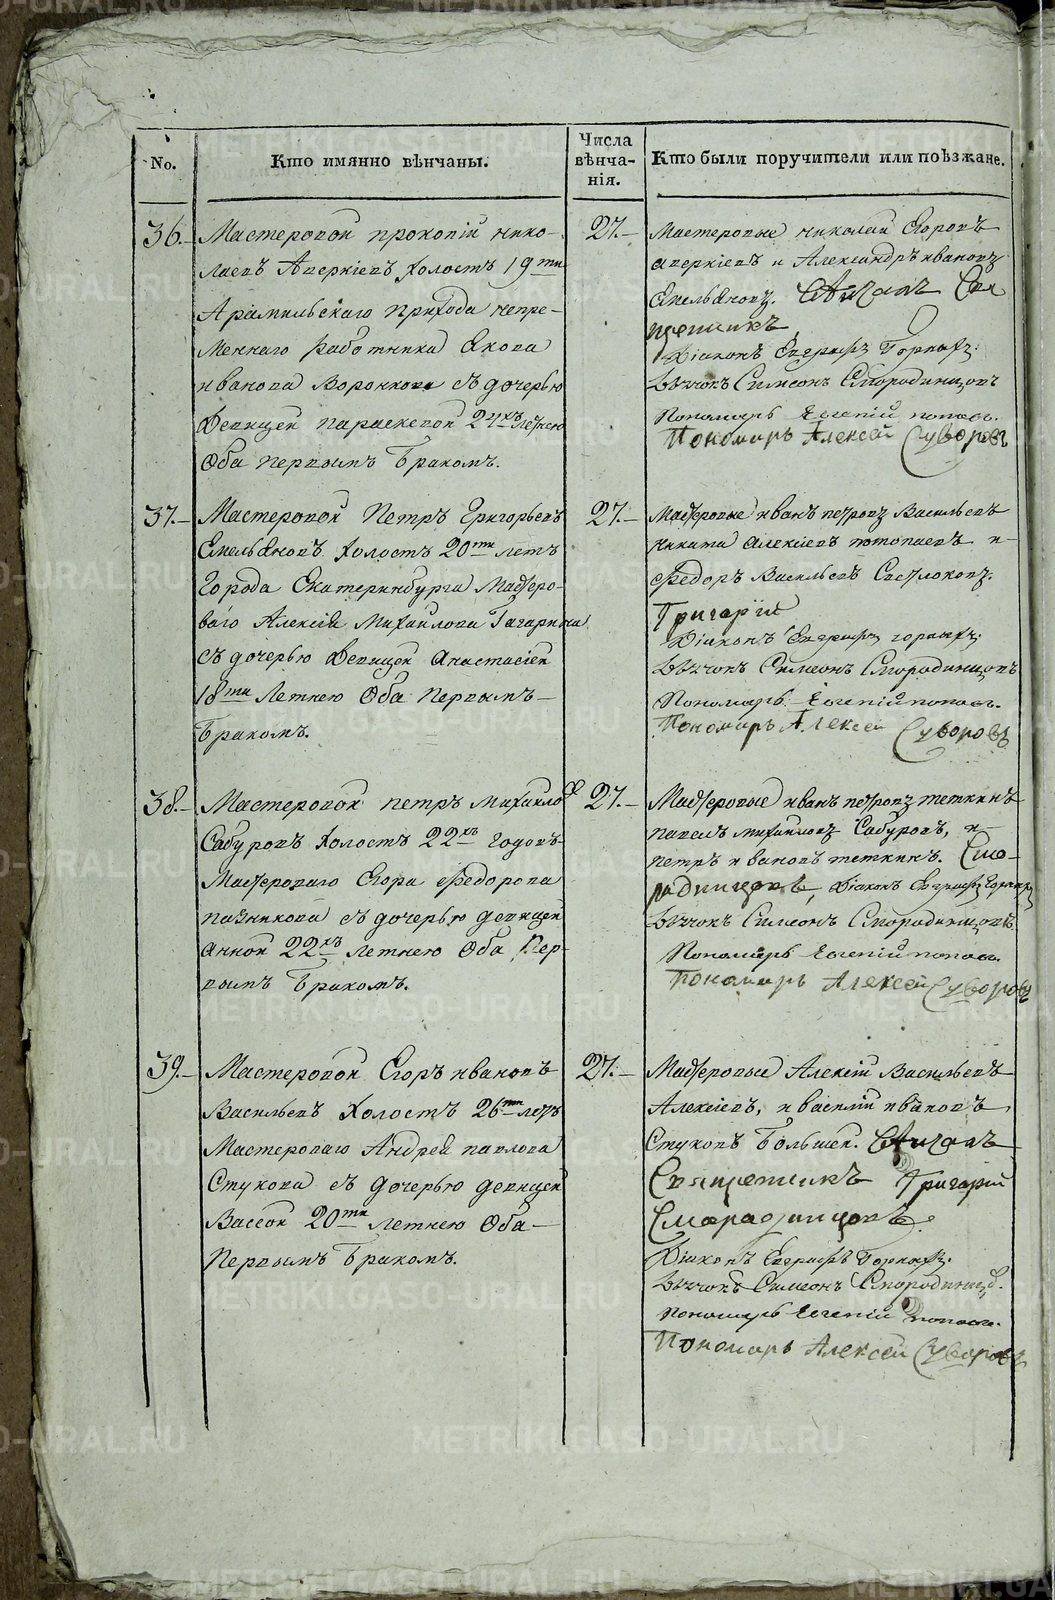 No.
Кто имянно вѣнчаны.
Числа
вѣнча-
нія.
Кто были поручители или поѣзжане.
36.
Мастеровой прокопій нико-
лаевъ Аверкіевъ холостъ 19ти
Арамильскаго прихода непре-
меннаго работника Якова
иванова Воронкова съ дочерью
Девицей параскевой 24хъ летнею
Оба первымъ Бракомъ.
27.
Мастеровые николай Егоровъ
аверкіевъ и Александръ ивановъ
Емельяновъ.
Діаконъ Евграфъ Горныхъ.
Дьячокъ Симеонъ Смородинцовъ
Пономарь Евгеній поповъ.
Пономарь Алексей Суворовъ
37.
Мастеровой Петръ Григорьевъ
Емельяновъ холостъ 20ти летъ
Города Екатеринбурга Мастеро-
ваго Алексія Михайлова Гагарина
съ дочерью Девицей Анастасіей
18ти Летнею Оба Первымъ
Бракомъ.
27.
Мастеровые иванъ петровъ Васильевъ
никита алексіевъ потопаевъ и
Федоръ Васильевъ Светлоковъ.
Григорій
Діаконъ Евграфъ горныхъ.
Дьячокъ Симеонъ Смородинцовъ
Пономарь Евгеній поповъ.
Пономарь Алексей Суворовъ
38.
Мастеровой петръ михайловъ
Сабуровъ холостъ 22хъ годовъ
Мастероваго Егора Федорова
пазникова съ дочерью девицей
анной 22хъ летнею Оба Пер-
вымъ Бракомъ.
27.
Мастеровые иванъ петровъ теткинъ
павелъ михайловъ Сабуровъ, и
петръ ивановъ теткинъ. Смо-
родинцовъ, Діаконъ Евграфъ Горныхъ
Дьячокъ Симеонъ Смородинцовъ.
Пономарь Евгеній поповъ.
Пономарь Алексей Суворовъ
39.
Мастеровой Егоръ ивановъ
Васильевъ холостъ 26ти летъ
Мастероваго Андрей павлова
Стукова съ дочерью девицей
Вассой 20ти летнею Оба
Первымъ Бракомъ.
27.
Мастеровые Алексій Васильевъ
Алексіевъ, и василій ивановъ
Стуковъ Большей.
Священникъ Григорій
Смарадинцовъ.
Діаконъ Евграфъ Горныхъ.
Дьячокъ Симеонъ Смородинцовъ.
пономарь Евгеній поповъ.
Пономарь Алексей Суворовъ
METRIKI.GASO-URAL.RU